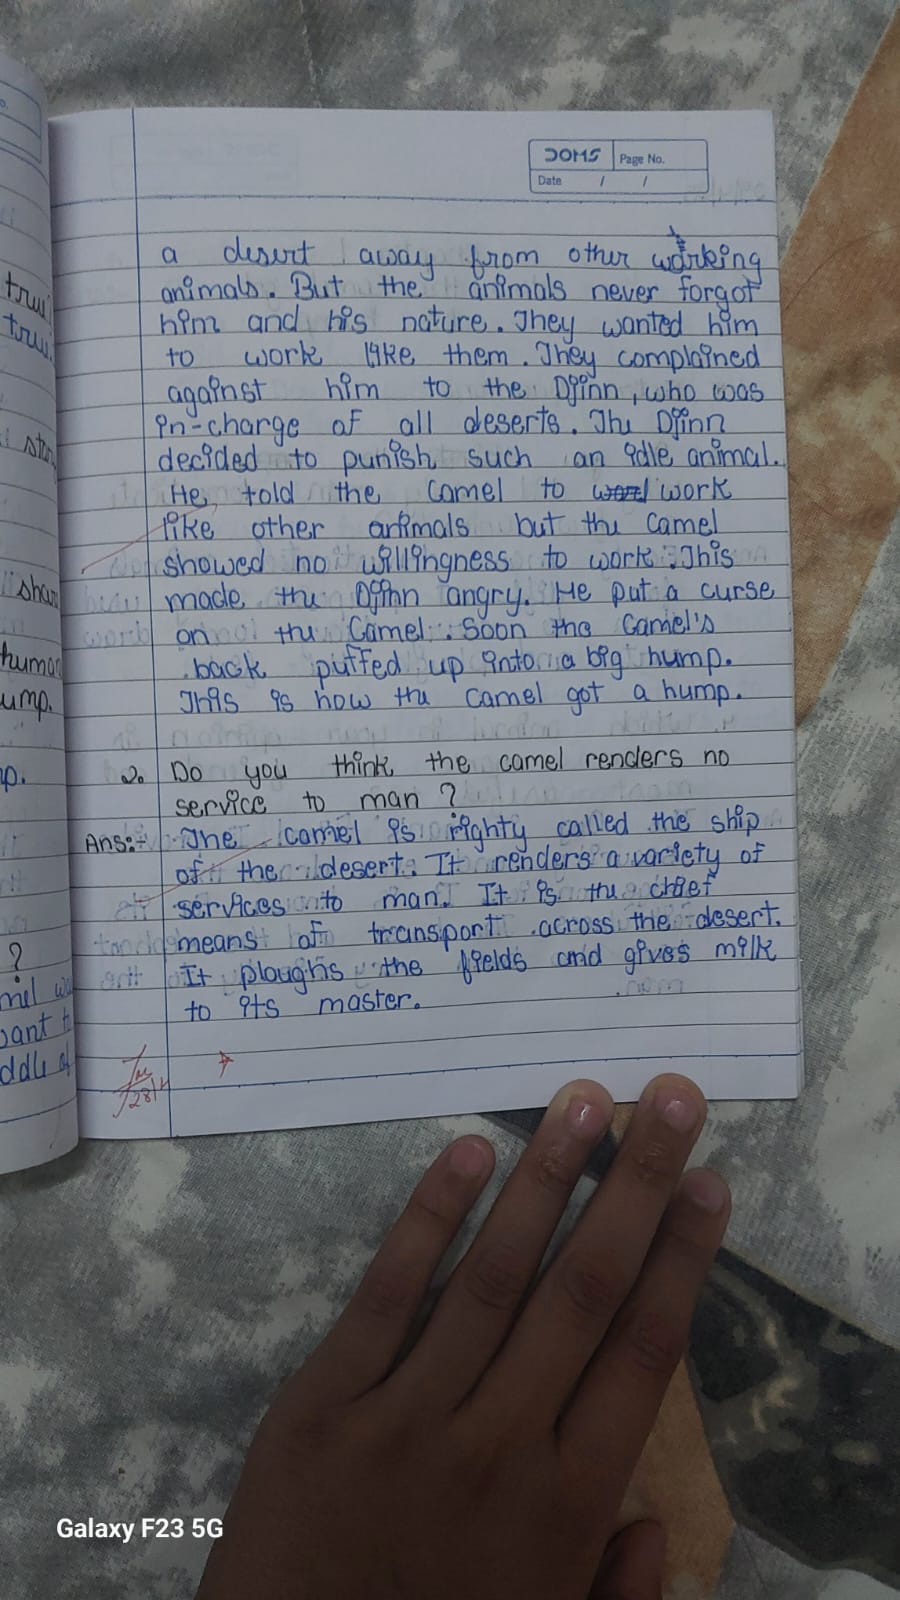 DOMS Page No.
Date / /
a desert away from other working
animals. But the animals never forgot
him and his nature. They wanted him
to work like them. They complained
against him to the Djinn, who was
in-charge of all deserts. The Djinn
decided to punish such an idle animal.
He told the camel to work
like other animals but the camel
showed no willingness to work. This
made the Djinn angry. He put a curse
on the Camel. Soon the Camel's
back puffed up into a big hump.
This is how the camel got a hump.
2. Do you think the camel renders no
service to man ?
Ans:- The camel is righty called the ship
of the desert. It renders a variety of
services to man. It is the chief
means of transport across the desert.
It ploughs the fields and gives milk
to its master.
true
true.
?
ump.
Galaxy F23 5G